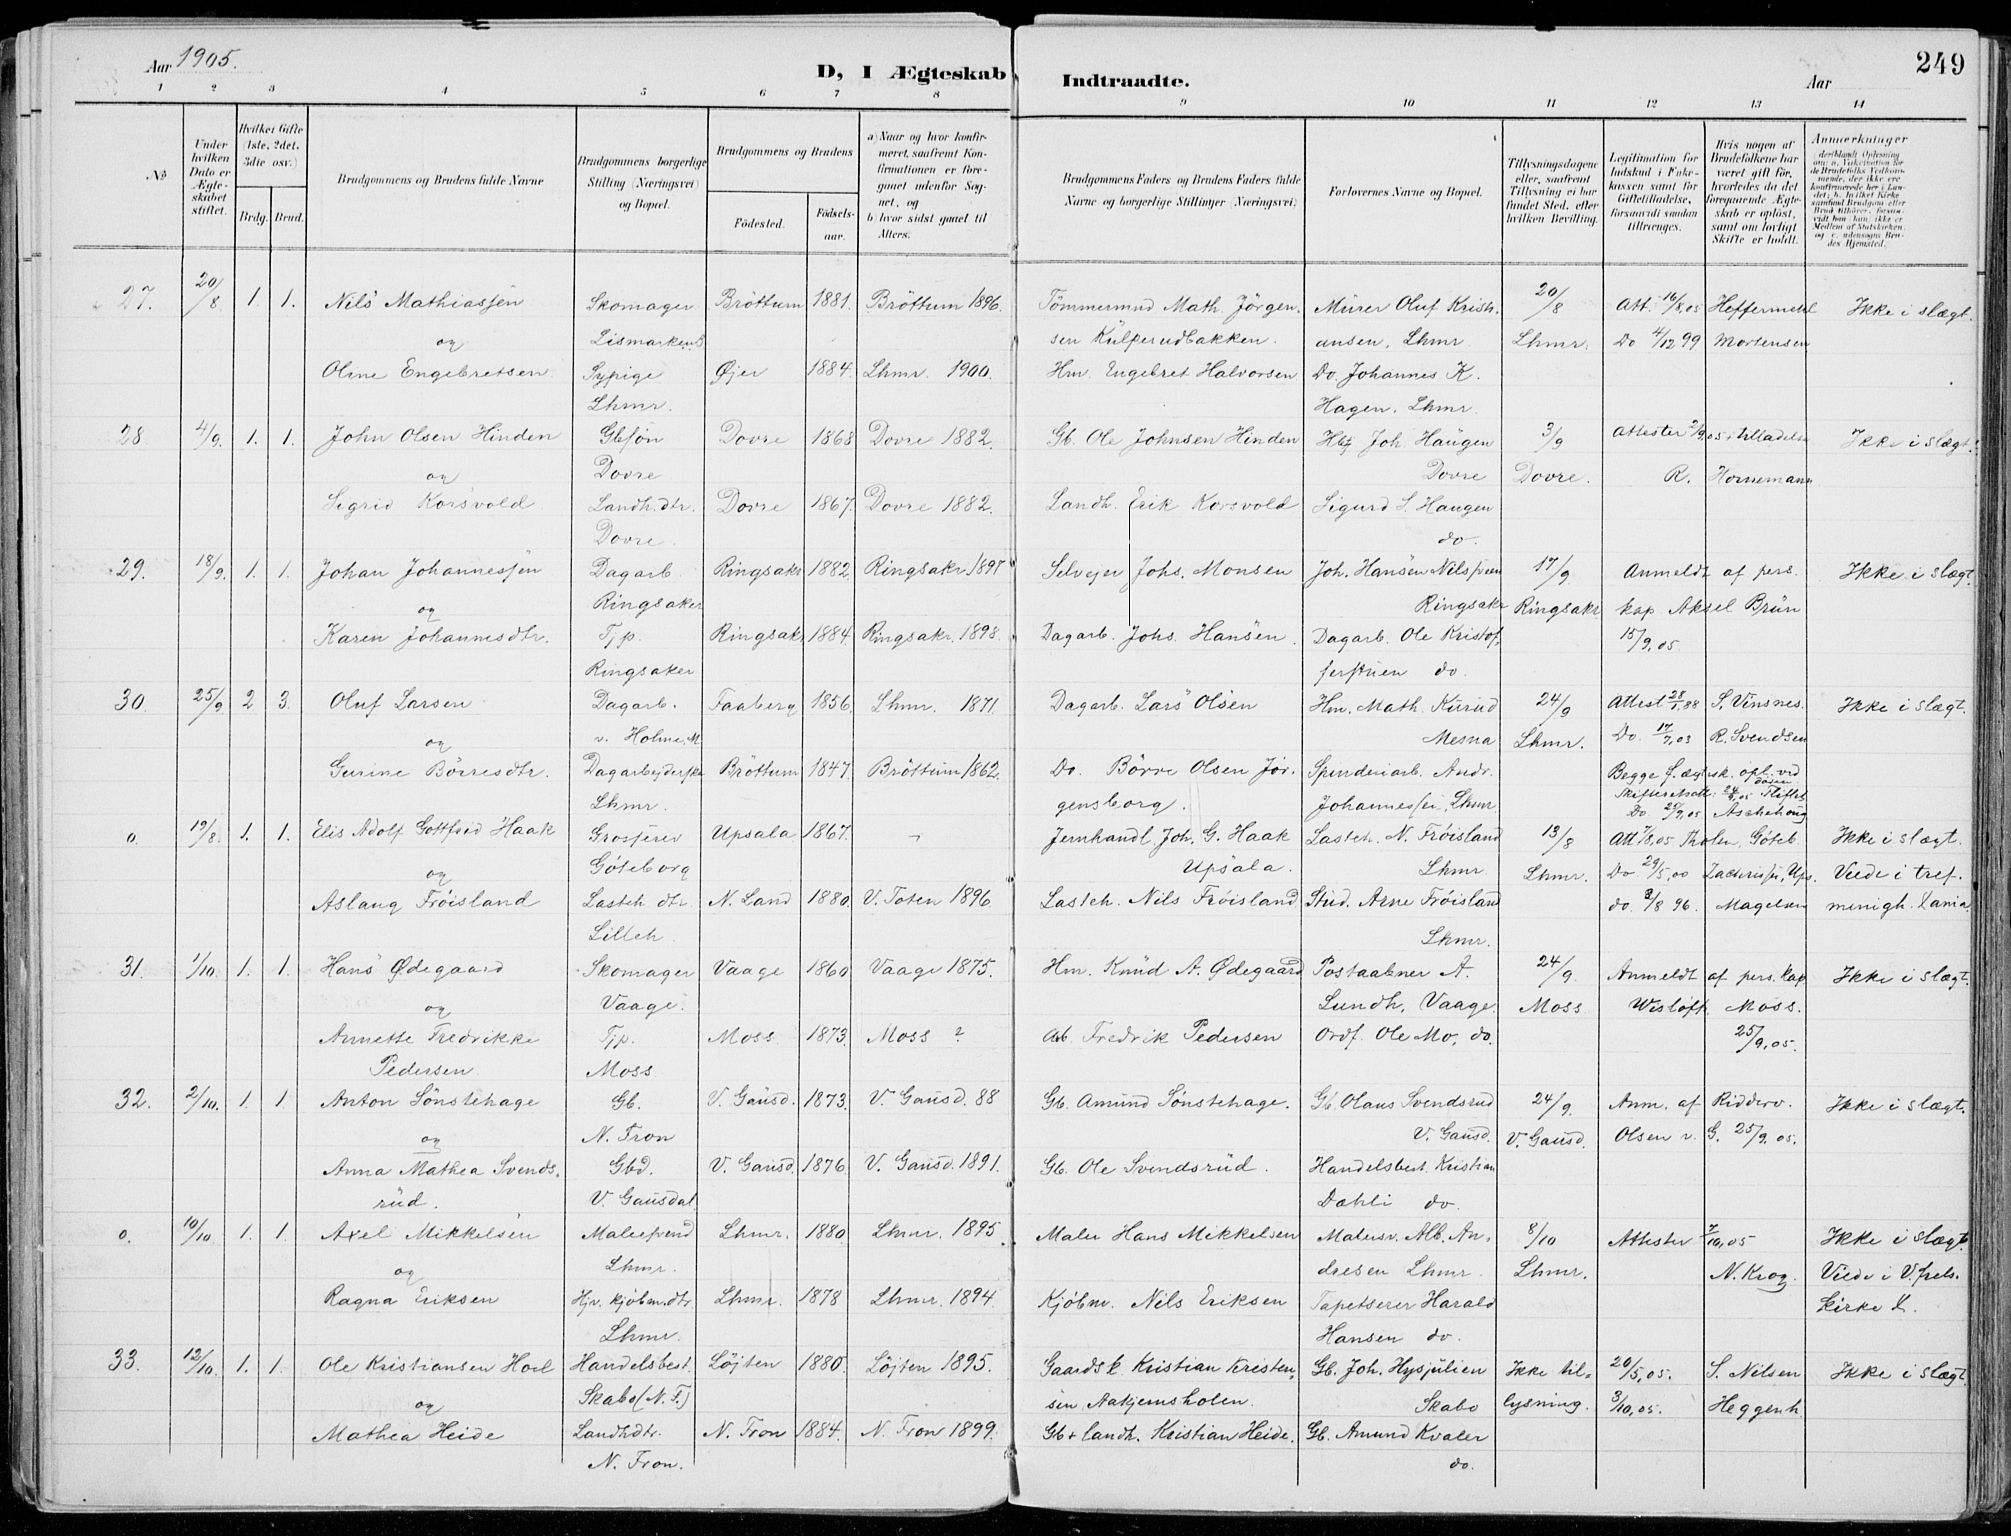 Aar 1905.
D, I Ægteskab Indtraadte.
Aar
249
1 2 3 4 5 6 7 8 9 10 11 12 13 14
No
Under hvilken Dato er Ægteskabet stiftet.
Hvilket Gifte (1ste, 2det, 3dte osv.)
Brdg. Brud.
Brudgommens og Brudens fulde Navne
Brudgommens borgerlige Stilling (Næringsvei) og Bopæl.
Brudgommens og Brudens
Fødested. Fødselsaar.
a) Naar og hvor konfirmeret, saafremt Konfirmationen er foregaaet udenfor Sognet, og
b) hvor sidst gaaet til Alters.
Brudgommens Faders og Brudens Faders fulde Navne og borgerlige Stillinger (Næringsvei)
Forlovernes Navne og Bopæl.
Tillysningsdagene eller, saafremt Tillysning ei har fundet Sted, efter hvilken Bevilling.
Legitimation for Indskud i Enkekassen samt for Giftetilladelse, forsaavidt saadan tiltrænges.
Hvis nogen af Brudefolkene har været gift før, hvorledes da det foregaaende Ægteskab er opløst, samt om lovligt Skifte er holdt.
Anmerkninger
27. 20/8 1. 1. Nils Mathiassen Skomager Brøttum 1881. Brøttum 1896. Tømmermnd Math. Jørgen- Murer Oluf Kristi- 20/8 Att. 16/8,05 Heffermehl Ikke i slægt.
og Lismarken sen Kulperudbakken. ansen, Lhmr. Lhmr. Do 4/12 99 Mortensen
Oline Engebretsen Sypige Øjer 1884. Lhmr. 1900. Hm. Engebret Halvorsen Do. Johannes K.
Lhmr. Hagen, Lhmr.
28. 4/9. 1. 1. John Olsen Hinden Gbsøn Dovre 1868 Dovre 1882. Gb. Ole Johnsen Hinden Joh. Haugen 3/9 Attester 05 + tilladelse Ikke i slægt.
og Dovre Dovre Dovre. R. Hornemann
Sigrid Korsvold Landh. dtr. Dovre 1867. Dovre 1882. Landh. Erik Korsvold Sigurd S. Haugen
Dovre. do.
29. 18/9. 1. 1. Johan Johannessen Dagarb Ringsakr 1882. Ringsakr 1897 Selvejer Johs. Monsen Joh. Hansen Nilssveen 17/9 Anmeldt af pers. Ikke i slægt.
og Ringsaker Ringsakr Ringsakr kap Aksel Brun
Karen Johannesdtr. Tjp. Ringsakr 1884. Ringsakr. 1898. Dagarb. Johs. Hansen. Dagarb. Ole Kristof- 15/9,05
Ringsaker ferstuen do.
30. 25/9 2 3. Oluf Larsen Dagarb. Faaberg 1856. Lhmr. 1871. Dagarb. Lars Olsen Hm. Math. Kurud 24/9 Attest 28/1.88 S. Vinsnes. Ikke i slægt.
og v. Holme, M. Mesna Lhmr. Do. 17/7,03 R. Svendsen
Gurine Børresdtr. Dagarbejderske Brøttum 1847. Brøttum 1862. Do. Børre Olsen Jør- Spinderiarb. Andr. Begge f. ægtesk. opl. ved døden.
Lhmr. gensborg. Johannessen, Lhmr. Skifteretsatt. 24/8,05
Do. 25/9,05 Aschehoug
o. 19/8. 1. 1. Elis Adolf Gottfrid Haak Grosserer Upsala 1867. — Jernhandl. Joh. G. Haak Lasteh. N. Frøisland 13/8 Att 7/8,05 Tholen, Göteb. Ikke i slægt.
og Göteborg Upsala. Lhmr. Lhmr. Do 29/5,00 Zacherissen, Ups. Viede i tref.
Aslaug Frøisland Lasteh. dtr. N. Land 1880. V. Toten 1896. Lasteh. Nils Frøisland Stud. Arne Frøisland do. 3/8 96. Magelsen menigh. Xania.
Lilleh. Lhmr.
31. 1/10. 1. 1. Hans Ødegaard Skomager Vaage 1860 Vaage 1875. Hm. Knud A. Ødegaard Postaabner A. 24/9 Anmeldt af pers. kap Ikke i slægt.
og Vaage. Lundh, Vaage. Moss Wisløff, Moss.
Annette Fredrikke Tjp. Moss 1873. Moss ? Ab. Fredrik Pedersen Ordf. Ole Mo, do. 25/9,05.
Pedersen. Moss
32. 2/10. 1. 1. Anton Sønstehage Gb. V. Gausd. 1873. V. Gausd. 88 Gb. Amund Sønstehage. Gb. Olaus Svendsrud 24/9. Anm. af Ridderv. Ikke i slægt.
og N. Fron V. Gausd. V. Gausd. Olsen v. G. 25/9.05.
Anna Mathea Svends- Gbd. V. Gausd. 1876. V. Gausd. 1891. Gb. Ole Svendsrud. Handelsbest. Kristian
rud. V. Gausdal Dæhli do.
o. 10/10 1. 1. Axel Mikkelsen Malersvend Lhmr. 1880. Lhmr. 1895. Maler Hans Mikkelsen Malersv. Alb. An- 8/10 Attester 7/10,05 Ikke i slægt.
og Lhmr. dresen Lhmr. Lhmr. N. Krog. Viede i V. frels.
Ragna Eriksen Hjv. kjøbm.dtr. Lhmr. 1878 Lhmr. 1894. Kjøbm. Nils Eriksen Tapetserer Harald kirke X.
Lhmr. Hansen do.
33. 12/10. 1. 1. Ole Kristiansen Hoel Handelsbest. Løjten 1880. Løjten 1895. Gaardsk. Kristian Kresten- Gb. Joh. Hysjulien Ikke til- 20/5,05. S. Nilsen Ikke i slægt.
og Skabo (N. F.) sen Aakjernsholen. Skabo lysning. 3/10,05. Heggenh
Mathea Heide Landhdtr. N. Fron 1884. N. Fron 1899. Gb + landh. Kristian Heide. Gb. Amund Kvaler
N. Fron. do.